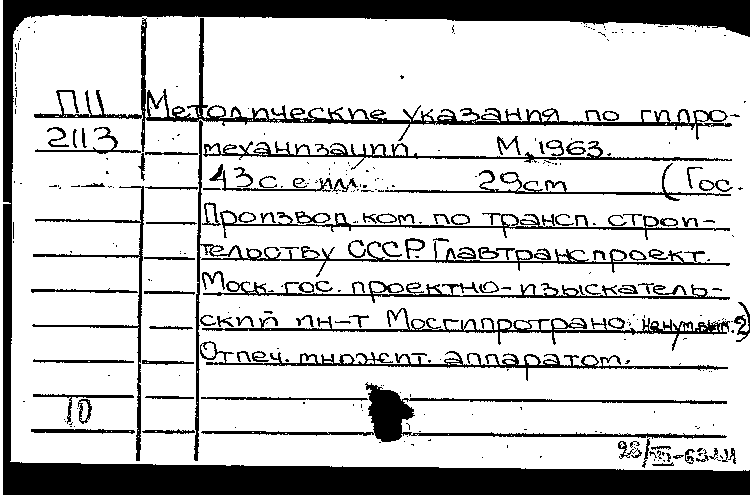 П11 Методические указания по гидро-
2113 механизации. М., 1963.
43 с. с илл. 29 cm (Гос.
Производ. ком. по трансп. строи-
тельству СССР. Главтранспроект.
Моск. гос. проектно-изыскатель-
ский ин-т Мосгипротранс,
Отпеч. множит. аппаратом.
10